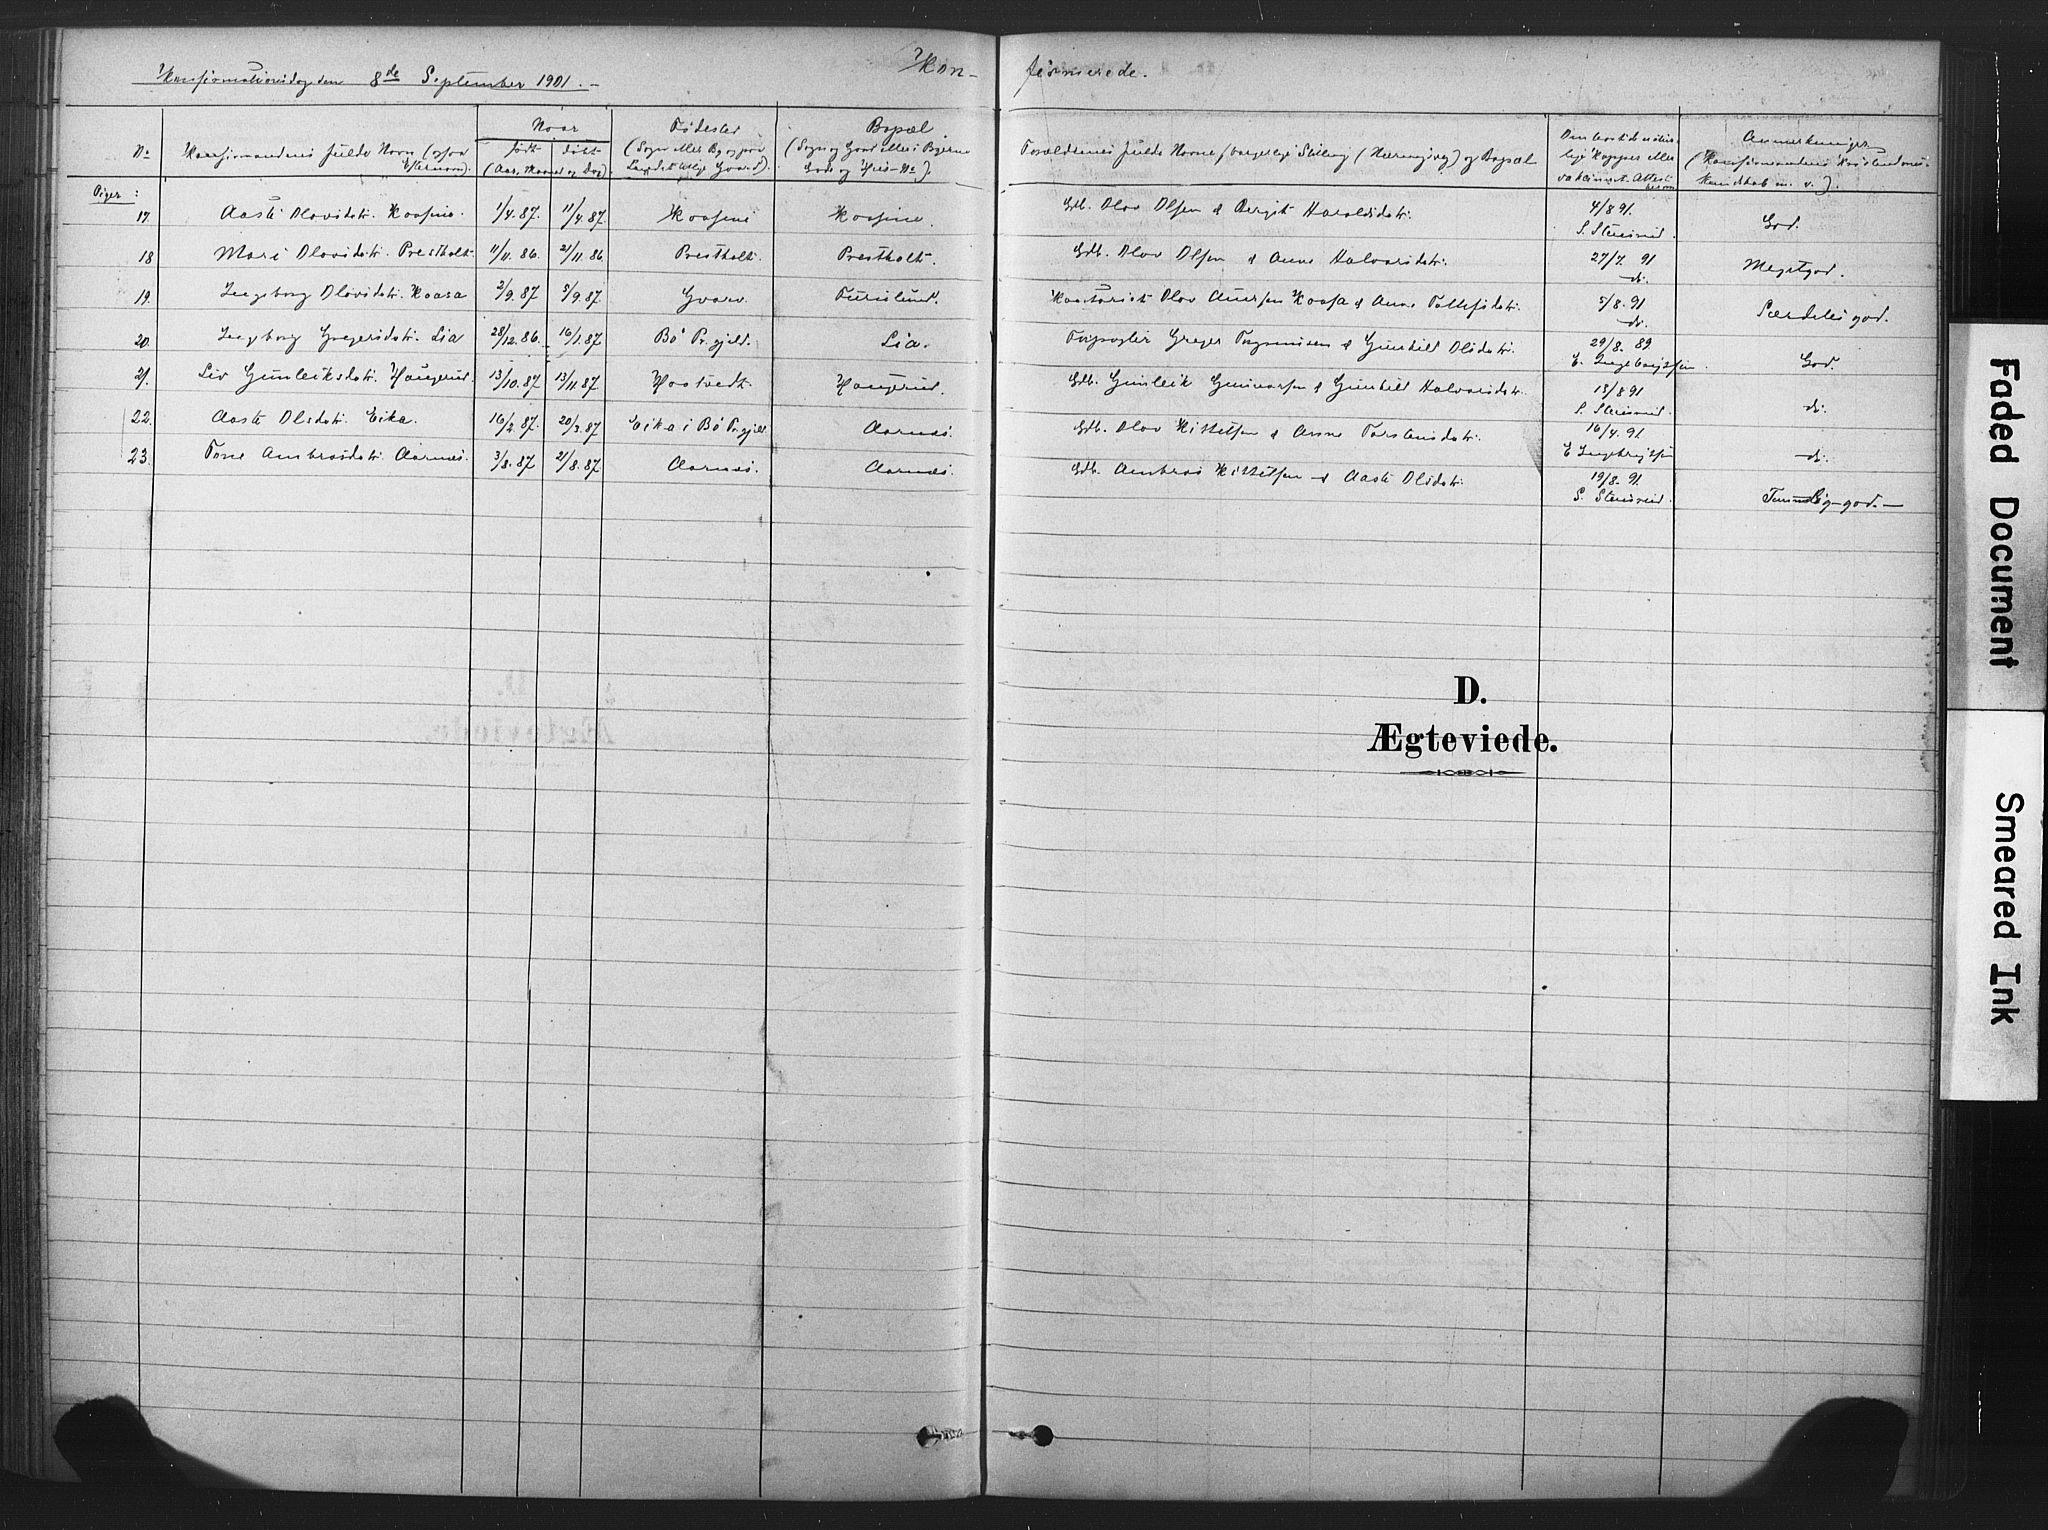 Konfirmationsdag den 8de September 1901. Kon- firmerede.
No Konfirmandens fulde Navn (ogsaa Efternavn). Naar født døbt (Aar, Maaned og Dag). Fødested (Sogn eller By og paa Landet tillige Gaard). Bopæl (Sogn og Gaard eller i Byerne Gade og Hus-No). Forældrenes fulde Navne, borgerlige Stilling (Næringsvei) og Bopæl Anmerkninger (Konfirmandens Kristendoms- kundskab m. v.).
Piger:
17. Aaste Olavsdatr. Kaasene. 1/4.87. 11/4.87. Kaasene Kaasene Gdb. Olav Olsen & Bergit Haraldsdatr. 4/8 91. S. Stensrud. God.
18 Mari Olavsdatr. Prestholt. 1/11.86. 21/11.86. Prestholt. Prestholt. Gdb. Olav Olsen & Anne Halvorsdatr. 27/7. 91 do. Megetgod.
19. Ingeborg Olavsdatr. Kaasa 2/9.87. 5/9.87. Gvarv. Furuslund. Olav Kaasa & Anne 5/8. 91 do. Særdeles god.
20. Ingeborg Gregersdatr. Lia 28/12.86. 16/1.87. Bø Prgjeld. Lia. Greger & Gunhild Olsdatr. 29/8. 89 E. Ingebrigtsen. God.
21. Liv Gunleiksdatr. Haugerud. 13/10.87. 13/11.87. Haatvedt. Haugerud. Gdb. Gunleik Gunnarsen & Gunhild Halvorsdatr. 18/8 91 S. Stensrud. do.
22. Aaste Olsdatr. Eika. 16/2.87. 20/3.87 Eika i Bø Prgjld. Aarnes. Gdb. Olav Kittelsen & Anne Torstensdatr. 16/4. 91 E Ingebrigtsen do.
23. Tone Ambrosdatr. Aarnes. 3/8.87 21/8.87. Aarnes. Aarnes. Gdb. Ambros Kittelsen & Aaste Olsdatr. 19/8. 91. S. Stensrud. Temmelig-god.
D.
Ægteviede.
Faded Document
Smeared Ink